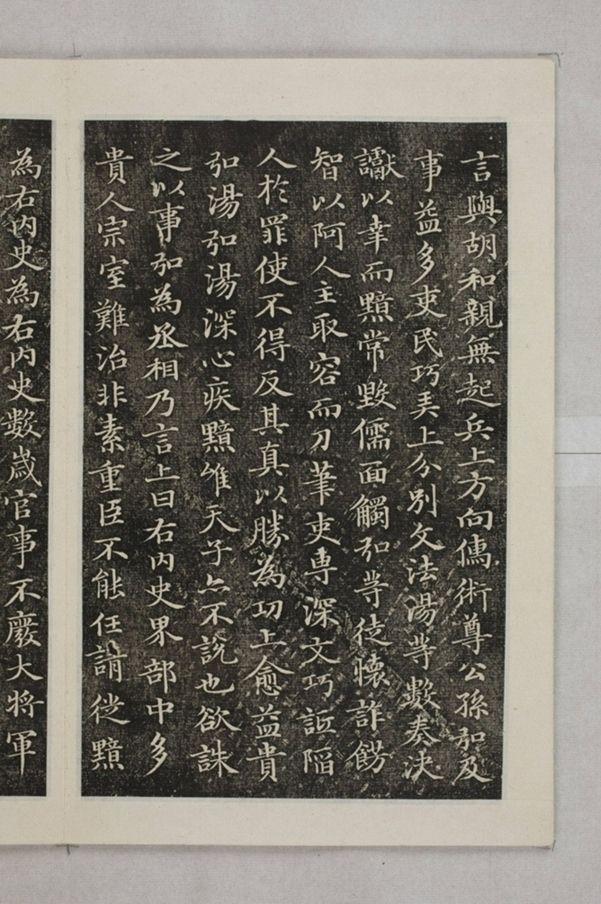 言與胡和親無起兵上方向儒術尊公孫弘及
事益多吏民巧弄上分別文法湯等數奏決
讞以幸而黯常毀儒面觸弘等徒懷詐飾
智以阿人主取容而刀筆吏專深文巧詆陷
人於罪使不得反其真以勝為功上愈益貴
弘湯弘湯深心疾黯唯天子亦不說也欲誅
之以事弘為丞相乃言上曰右內史界部中多
貴人宗室難治非素重臣不能任請徙黯
為右內史為右內史數歲官事不廢大將軍